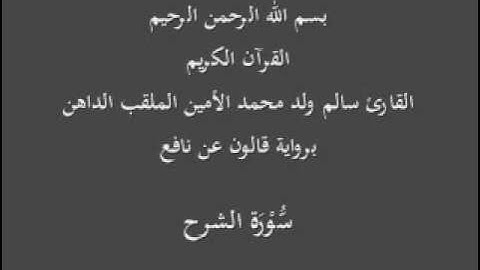 بسم الله الرحمن الرحيم
القرآن الكريم
القارئ سالم ولد محمد الأمين الملقب الداهن
برواية قالون عن نافع
سُّوْرَة الشرح